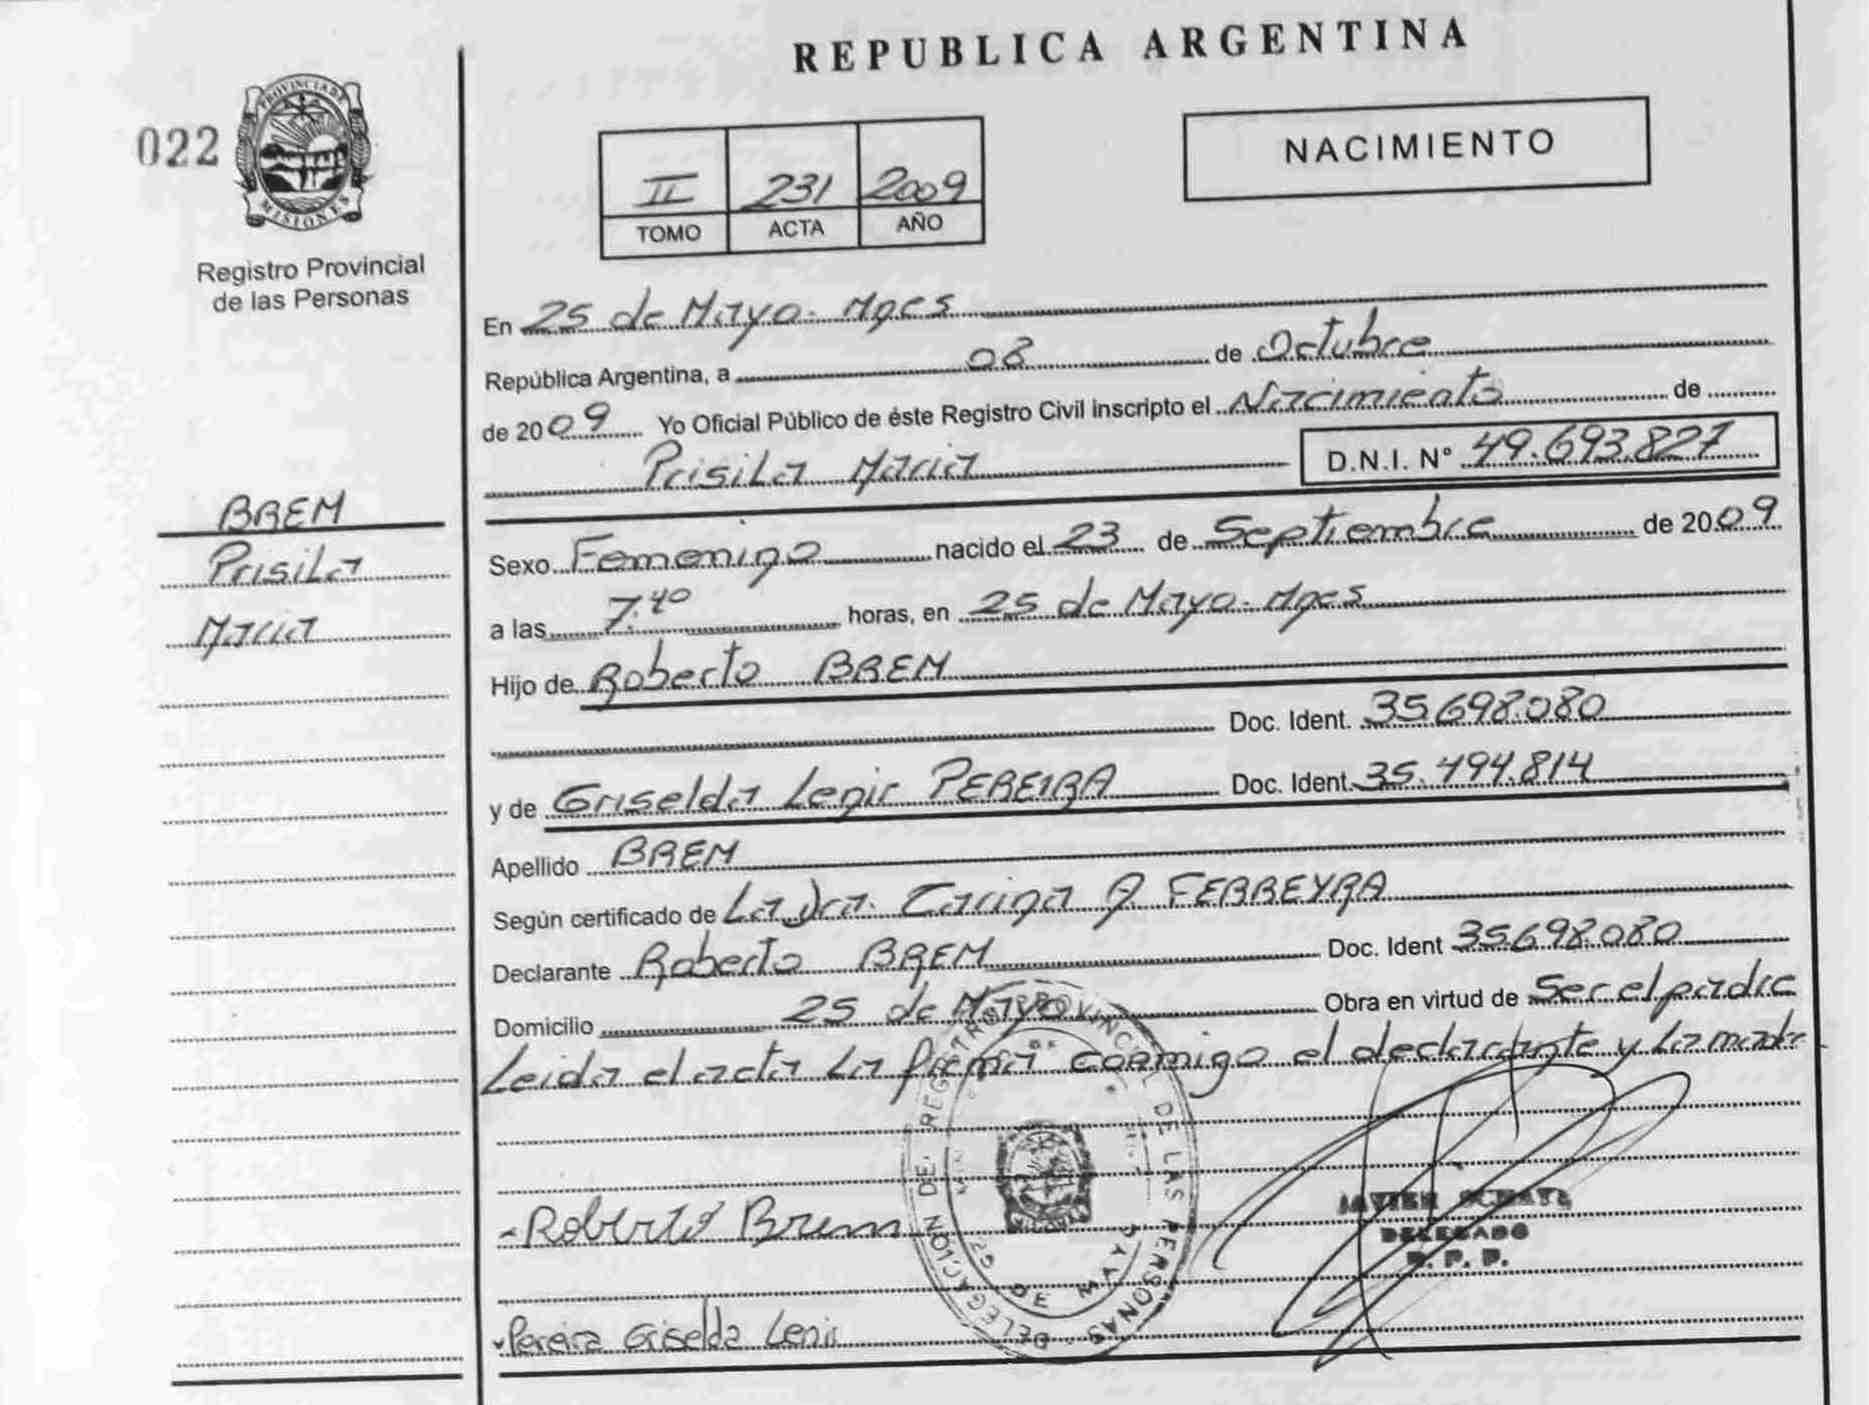 REPUBLICA ARGENTINA
022
PROVINCIA DE MISIONES
Registro Provincial
de las Personas
II 231 2009
TOMO ACTA AÑO
NACIMIENTO
En 25 de Mayo. Mnes
República Argentina, a 08 de Octubre
de 2009 Yo Oficial Público de éste Registro Civil inscripto el Nacimiento de
Prisila Maria D.N.I. N° 49.693.827
BREM
Prisila
Maria
Sexo Femenino nacido el 23 de Septiembre de 2009
a las 7.40 horas, en 25 de Mayo. Mnes
Hijo de Roberto BREM
Doc. Ident. 35698.080
y de Griselda Lenir PEREIRA Doc. Ident. 35.494.814
Apellido BREM
Según certificado de La Dra. Carina A FERREYRA
Declarante Roberto BREM Doc. Ident 35698.080
Domicilio 25 de Mayo Obra en virtud de Ser el padre
Leida el acta La firma conmigo el declarante y La madre
DELEGACION DE REGISTRO PROVINCIAL DE LAS PERSONAS
25 DE MAYO
Roberto Brem
JAVIER
DELEGADO
R. P. P.
Pereira Griselda Lenir